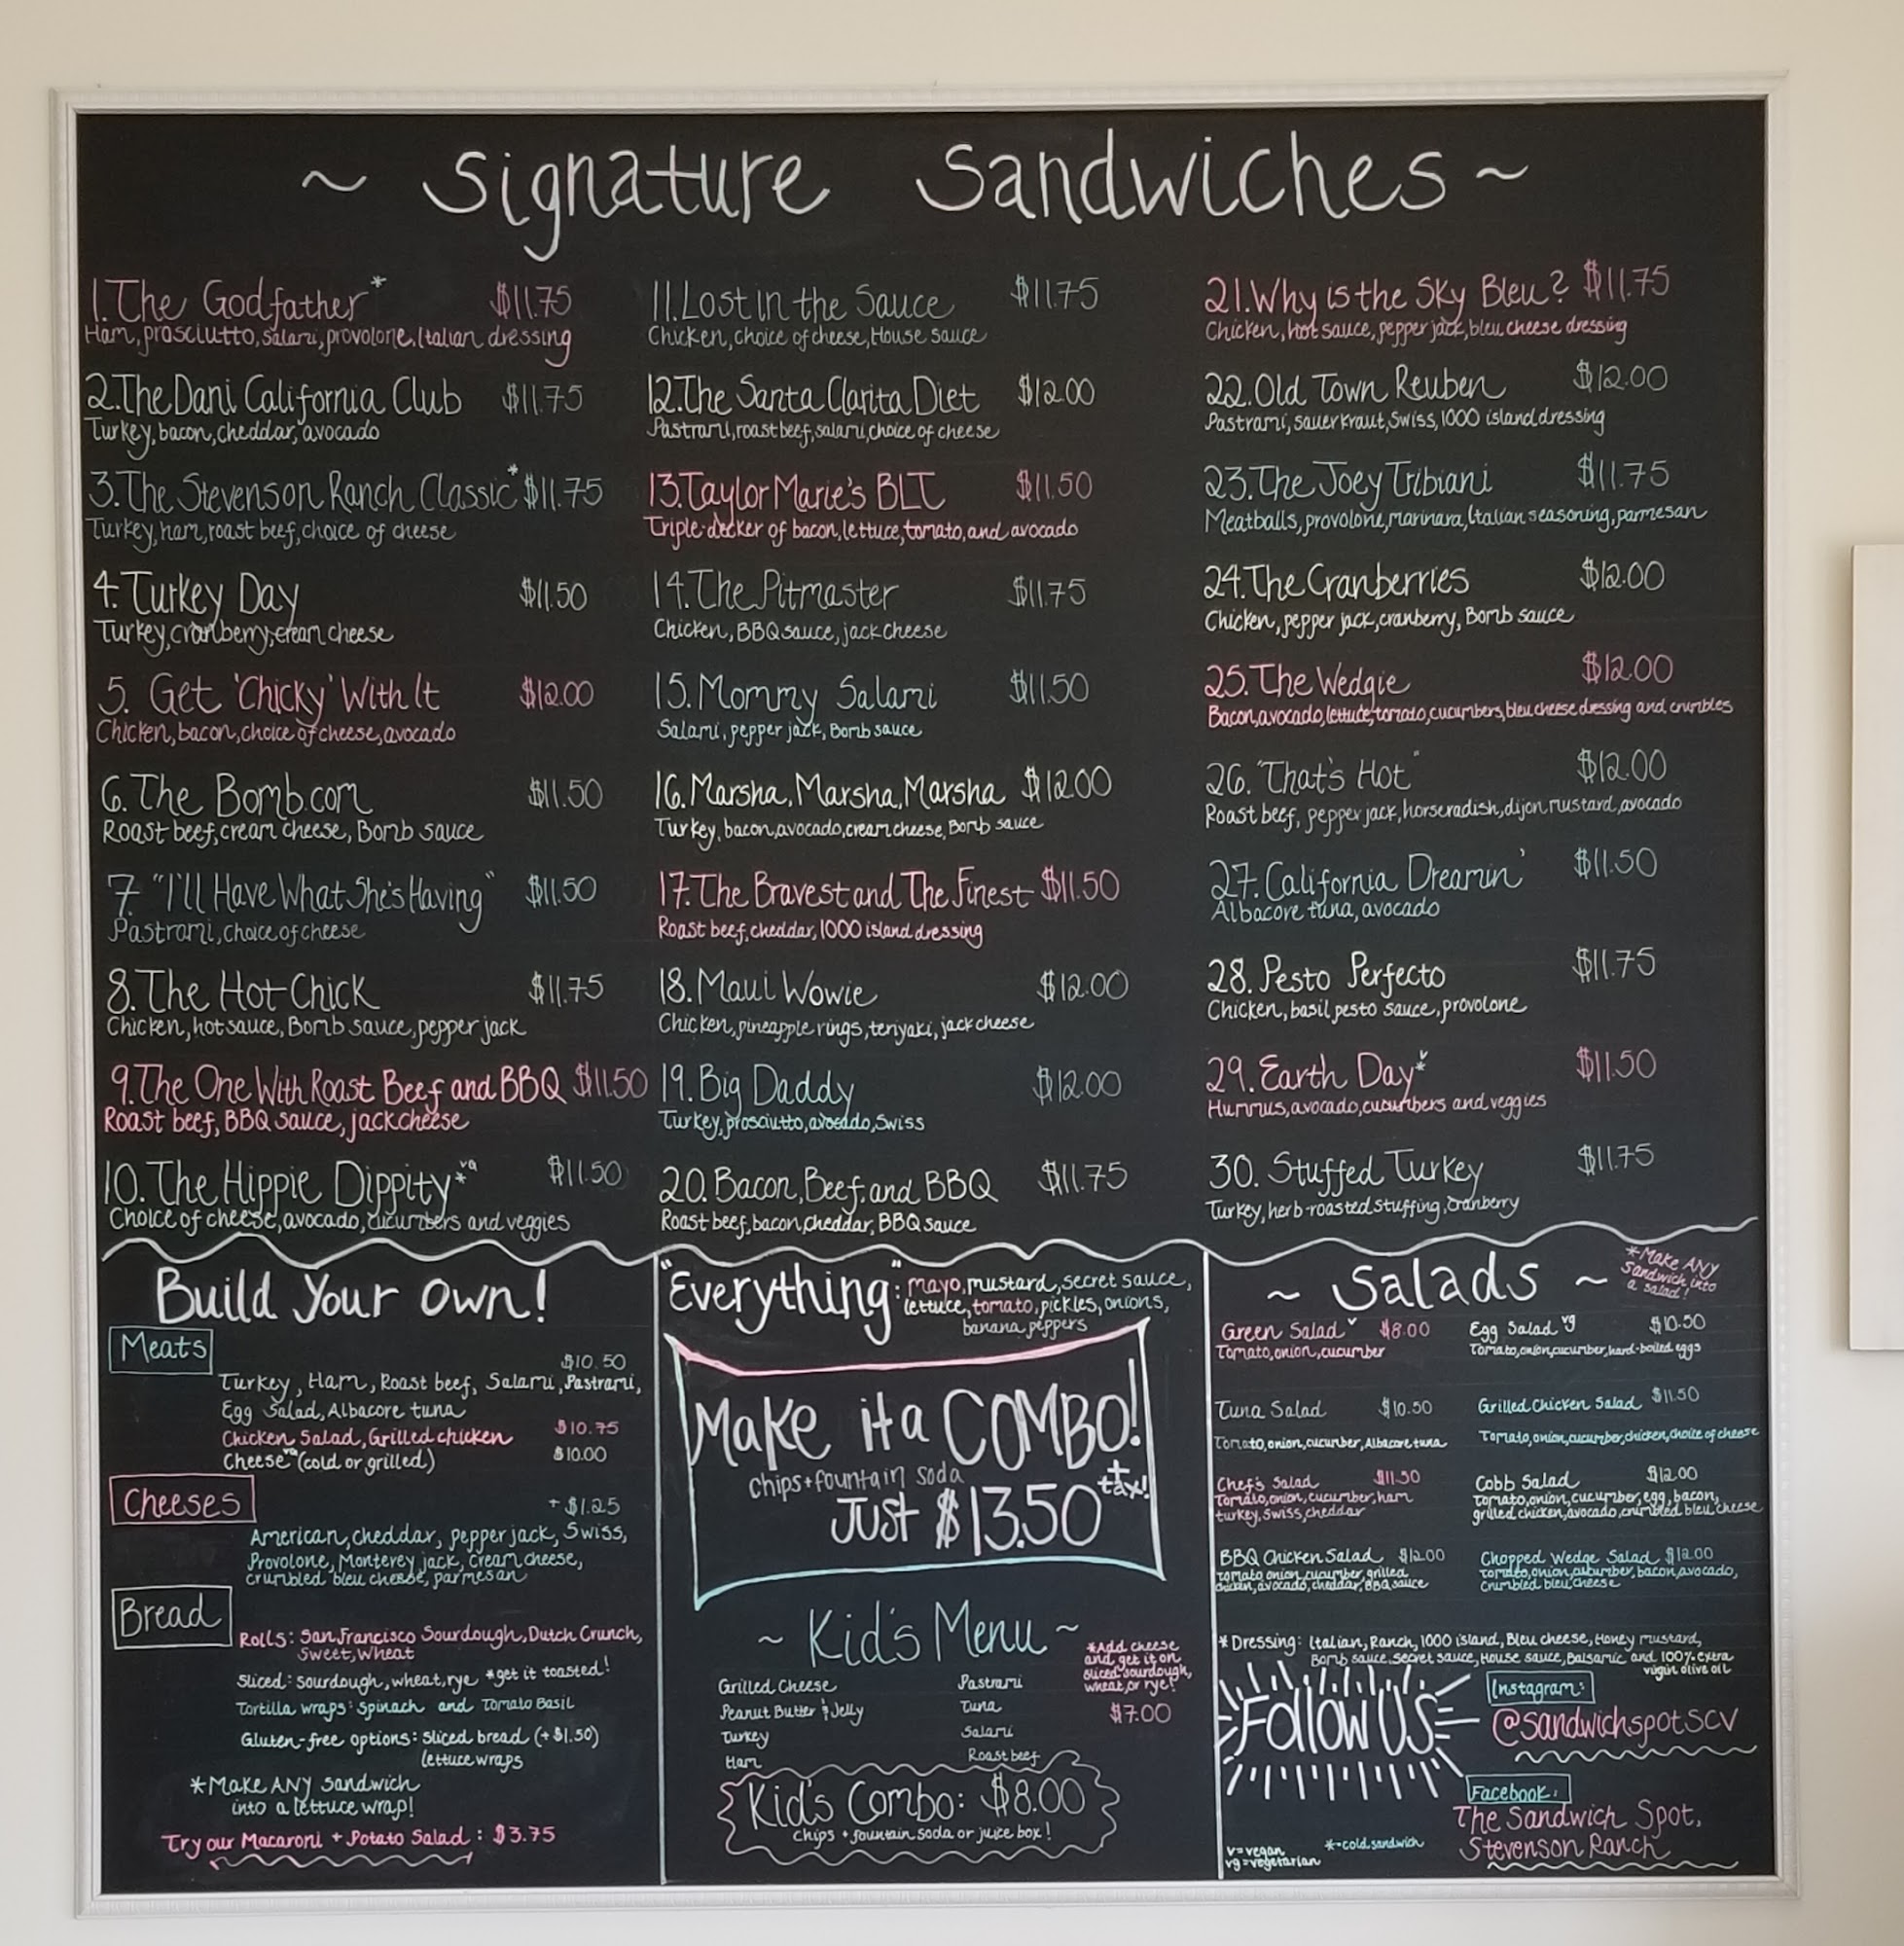 ~ Signature Sandwiches ~
1. The Godfather* $11.75
Ham, prosciutto, salami, provolone, Italian dressing
2. The Dani California Club $11.75
Turkey, bacon, cheddar, avocado
3. The Stevenson Ranch Classic* $11.75
Turkey, ham, roast beef, choice of cheese
4. Turkey Day $11.50
Turkey, cranberry, cream cheese
5. Get 'Chicky' With It $12.00
Chicken, bacon, choice of cheese, avocado
6. The Bomb.com $11.50
Roast beef, cream cheese, Bomb sauce
7. "I'll Have What She's Having" $11.50
Pastrami, choice of cheese
8. The Hot Chick $11.75
Chicken, hot sauce, Bomb sauce, pepper jack
9. The One With Roast Beef and BBQ $11.50
Roast beef, BBQ sauce, jack cheese
10. The Hippie Dippity*vg $11.50
Choice of cheese, avocado, cucumbers and veggies
11. Lost in the Sauce $11.75
Chicken, choice of cheese, House sauce
12. The Santa Clarita Diet $12.00
Pastrami, roast beef, salami, choice of cheese
13. Taylor Marie's BLT $11.50
Triple-decker of bacon, lettuce, tomato, and avocado
14. The Pitmaster $11.75
Chicken, BBQ sauce, jack cheese
15. Mommy Salami $11.50
Salami, pepper jack, Bomb sauce
16. Marsha, Marsha, Marsha $12.00
Turkey, bacon, avocado, cream cheese, Bomb sauce
17. The Bravest and The Finest $11.50
Roast beef, cheddar, 1000 island dressing
18. Maui Wowie $12.00
Chicken, pineapple rings, teriyaki, jack cheese
19. Big Daddy $12.00
Turkey, prosciutto, avocado, Swiss
20. Bacon, Beef, and BBQ $11.75
Roast beef, bacon, cheddar, BBQ sauce
21. Why is the Sky Bleu? $11.75
Chicken, hot sauce, pepper jack, bleu cheese dressing
22. Old Town Reuben $12.00
Pastrami, sauerkraut, Swiss, 1000 island dressing
23. The Joey Tribiani $11.75
Meatballs, provolone, marinara, Italian seasoning, parmesan
24. The Cranberries $12.00
Chicken, pepper jack, cranberry, Bomb sauce
25. The Wedgie $12.00
Bacon, avocado, lettuce, tomato, cucumbers, bleu cheese dressing and crumbles
26. "That's Hot" $12.00
Roast beef, pepper jack, horseradish, dijon mustard, avocado
27. California Dreamin' $11.50
Albacore tuna, avocado
28. Pesto Perfecto $11.75
Chicken, basil pesto sauce, provolone
29. Earth Day*v $11.50
Hummus, avocado, cucumbers and veggies
30. Stuffed Turkey $11.75
Turkey, herb-roasted stuffing, cranberry
Build Your Own!
Meats
$10.50
Turkey, Ham, Roast beef, Salami, Pastrami,
Egg Salad, Albacore tuna
Chicken Salad, Grilled chicken $10.75
Cheese vg (cold or grilled) $10.00
Cheeses
+ $1.25
American, cheddar, pepper jack, Swiss,
Provolone, Monterey jack, Cream cheese,
crumbled bleu cheese, parmesan
Bread
Rolls: San Francisco Sourdough, Dutch Crunch,
Sweet, Wheat
Sliced: sourdough, wheat, rye *get it toasted!
Tortilla wraps: Spinach and Tomato Basil
Gluten-free options: sliced bread (+$1.50)
lettuce wraps
*Make ANY sandwich
into a lettuce wrap!
Try our Macaroni + Potato Salad: $3.75
"Everything": mayo, mustard, secret sauce,
lettuce, tomato, pickles, onions,
banana peppers
Make it a COMBO!
chips + fountain soda
Just $13.50 + tax!
~ Kid's Menu ~
*Add cheese
and get it on
sliced sourdough,
wheat, or rye!
$7.00
Grilled Cheese Pastrami
Peanut Butter & Jelly Tuna
Turkey Salami
Ham Roast beef
Kid's Combo: $8.00
chips + fountain soda or juice box!
~ Salads ~
*Make ANY
Sandwich into
a salad!
Green Salad v $8.00
Tomato, onion, cucumber
Egg Salad vg $10.50
Tomato, onion, cucumber, hard-boiled eggs
Tuna Salad $10.50
Tomato, onion, cucumber, Albacore tuna
Grilled Chicken Salad $11.50
Tomato, onion, cucumber, chicken, choice of cheese
Chef's Salad $11.50
Tomato, onion, cucumber, ham
turkey, swiss, cheddar
Cobb Salad $12.00
Tomato, onion, cucumber, egg, bacon,
grilled chicken, avocado, crumbled bleu cheese
BBQ Chicken Salad $12.00
Tomato, onion, cucumber, grilled
chicken, avocado, cheddar, BBQ sauce
Chopped Wedge Salad $12.00
Tomato, onion, cucumber, bacon, avocado,
Crumbled bleu cheese
*Dressing: Italian, Ranch, 1000 island, Bleu cheese, Honey mustard,
Bomb sauce, secret sauce, House sauce, Balsamic and 100% extra
virgin olive oil
Follow US
Instagram:
@sandwichspotscv
Facebook:
The Sandwich Spot,
Stevenson Ranch
v = vegan
vg = vegetarian
*=cold sandwich